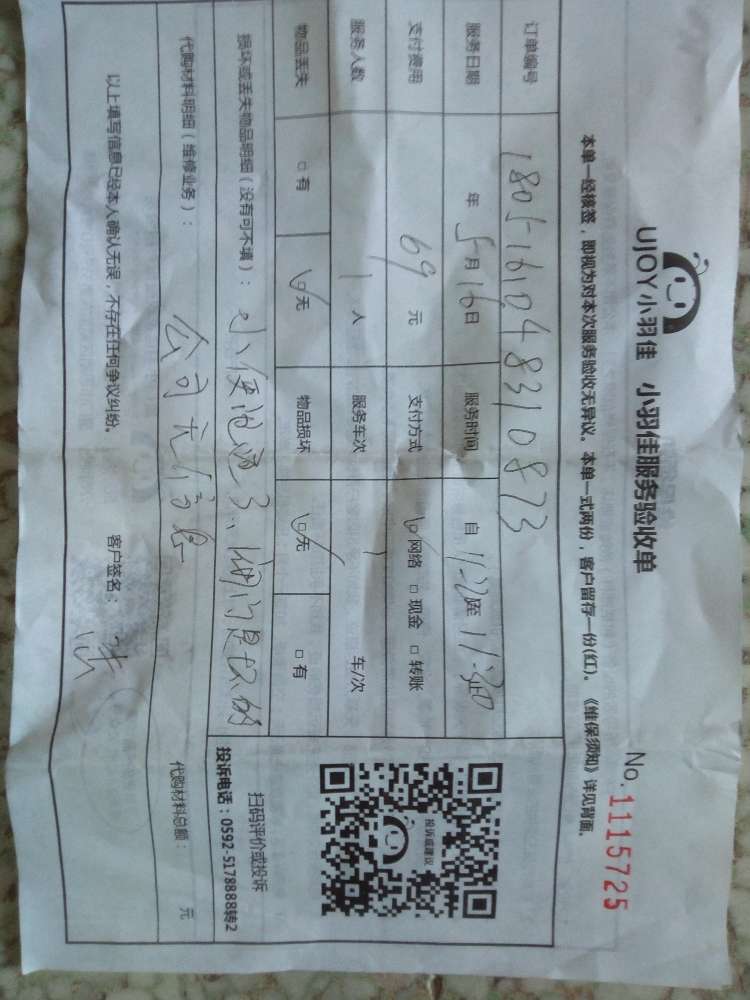 UJOY小羽佳 小羽佳服务验收单
No.1115725
本单一经接签，即视为对本次服务验收无异议。本单一式两份，客户留存一份(红)。《维保须知》详见背面。
订单编号 1805161048310873
服务日期 年 5月16日 服务时间 自 至
支付费用 69 元 支付方式 网络 □现金 □转账
服务人数 1 人 服务车次 1 车/次
物品丢失 □有 □无 物品损坏 □无 □有
损坏或丢失物品明细（没有可不填）： 小便池通了、阀门是坏的
代购材料明细（维修业务）： 公司无信息
代购材料总额： 元
以上填写信息已经本人确认无误，不存在任何争议纠纷。 客户签名：
投诉或建议
扫码评价或投诉
投诉电话：0592-5178888转2